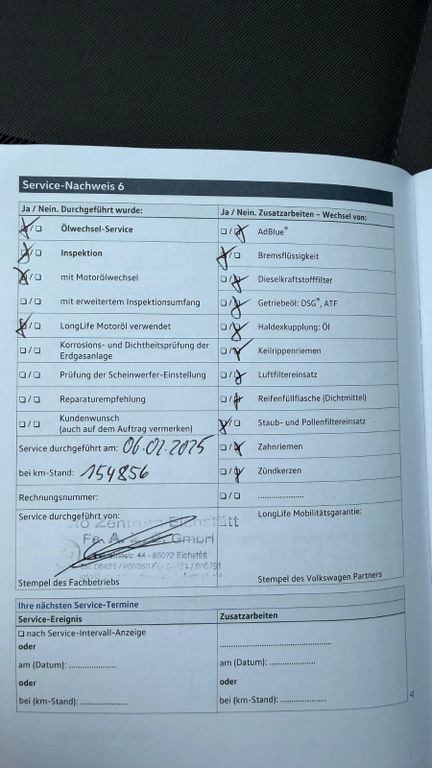 Service-Nachweis 6
Ja / Nein. Durchgeführt wurde:
Ölwechsel-Service
Inspektion
mit Motorölwechsel
mit erweitertem Inspektionsumfang
LongLife Motoröl verwendet
Korrosions- und Dichtheitsprüfung der
Erdgasanlage
Prüfung der Scheinwerfer-Einstellung
Reparaturempfehlung
Kundenwunsch
(auch auf dem Auftrag vermerken)
Service durchgeführt am: 06.02.2025
bei km-Stand: 154856
Rechnungsnummer:
Service durchgeführt von:
Zentrum Eichstätt
GmbH
44 - 85072 Eichstätt
Stempel des Fachbetriebs
Ja / Nein. Zusatzarbeiten – Wechsel von:
AdBlue®
Bremsflüssigkeit
Dieselkraftstofffilter
Getriebeöl: DSG®, ATF
Haldexkupplung: Öl
Keilrippenriemen
Luftfiltereinsatz
Reifenfüllflasche (Dichtmittel)
Staub- und Pollenfiltereinsatz
Zahnriemen
Zündkerzen
......................
LongLife Mobilitätsgarantie:
Stempel des Volkswagen Partners
Ihre nächsten Service-Termine
Service-Ereignis
nach Service-Intervall-Anzeige
oder
am (Datum): ......................
oder
bei (km-Stand): ......................
Zusatzarbeiten
......................
am (Datum): ......................
oder
bei (km-Stand): ......................